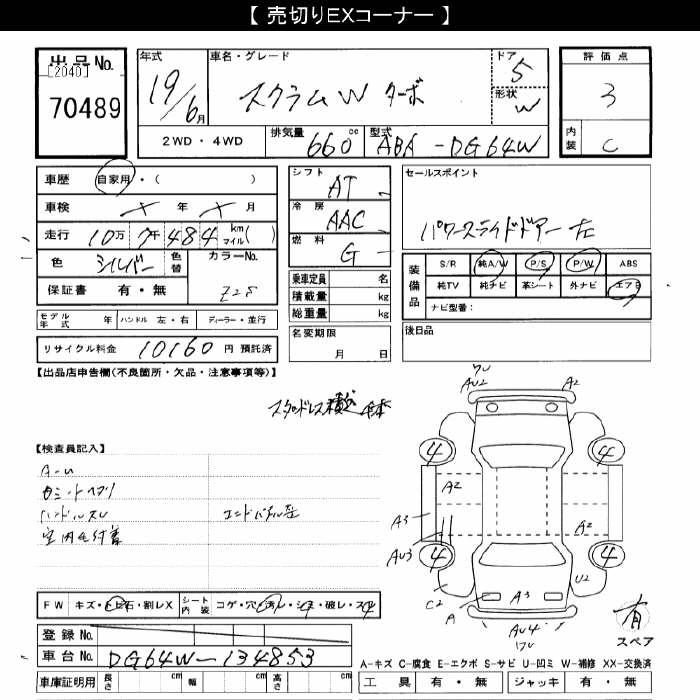 【 売切りEXコーナー 】
出品No.
[2040]
70489
年式
19/6月
車名・グレード
スクラムW ターボ
ドア
5
形状
W
評価点
3
内装
C
2WD・4WD
排気量
660cc
型式
ABA-DG64W
車歴 自家用・( )
車検 年 月
走行 10万7千484 km マイル( )
色 シルバー 色替 カラーNo.
保証書 有・無 Z2S
モデル年式 年 ハンドル 左・右 ディーラー・並行
リサイクル料金 10160円 預託済
シフト
AT
冷房
AAC
燃料
G
乗車定員 名
積載量 kg
総重量 kg
名変期限
月 日
セールスポイント
パワースライドドアー 左
装備品
S/R 純A/W P/S P/W ABS
純TV 純ナビ 革シート 外ナビ エアB
ナビ型番:
後日品
【出品店申告欄(不良箇所・欠品・注意事項等)】
スタッドレス積込 4本
【検査員記入】
A-U
ハンドルスレ
室内毛付着
FW キズ・トビ石・割レX シート内装 コゲ・穴・汚レ・シミ・破レ・スレ
登録No.
車台No. DG64W-134853
車庫証明用 長さ cm 幅 cm 高さ cm
AU2
A2
4
4
A2
A3
AU3
A2
4
4
C2
A
A3
U2
AU4
有
スペア
A-キズ C-腐食 E-エクボ S-サビ U-凹ミ W-補修 XX-交換済
工具 有・無 ジャッキ 有・無